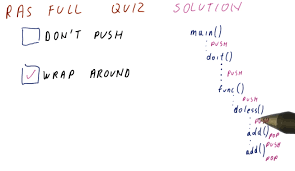 RAS FULL QUIZ SOLUTION
DON'T PUSH
WRAP AROUND
main()
PUSH
doit()
PUSH
func()
PUSH
doless()
PUSH
add()
POP
PUSH
add()
POP